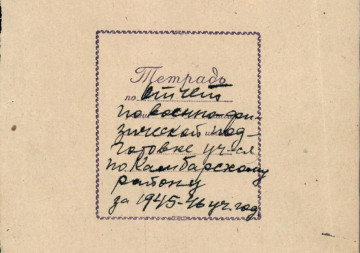 Тетрадь
по отчет
по военно-фи-
зической под-
готовке уч-ся
по Камбарскому
району
за 1945-46 уч. год